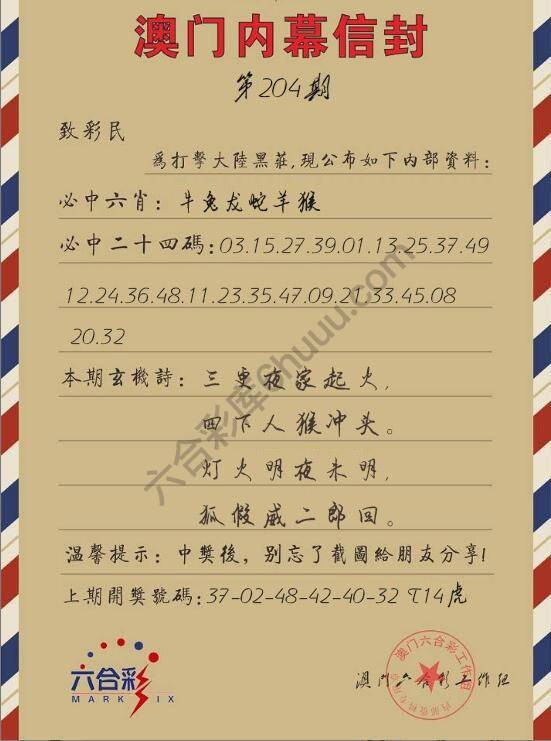 澳门内幕信封
第204期
致彩民
為打擊大陸黑莊,現公布如下内部資料:
必中六肖: 牛兔龙蛇羊猴
必中二十四碼:03.15.27.39.01.13.25.37.49
12.24.36.48.11.23.35.47.09.21.33.45.08
20.32
本期玄機詩: 三更夜家起火,
四下人猴冲头。
灯火明夜未明,
狐假威二郎回。
温馨提示: 中獎後,别忘了截圖給朋友分享!
上期開獎號碼:37-02-48-42-40-32 T14虎
六合彩
MARK SIX
澳门六合彩工作组
澳门六合彩工作组
六合彩库6huuu.com